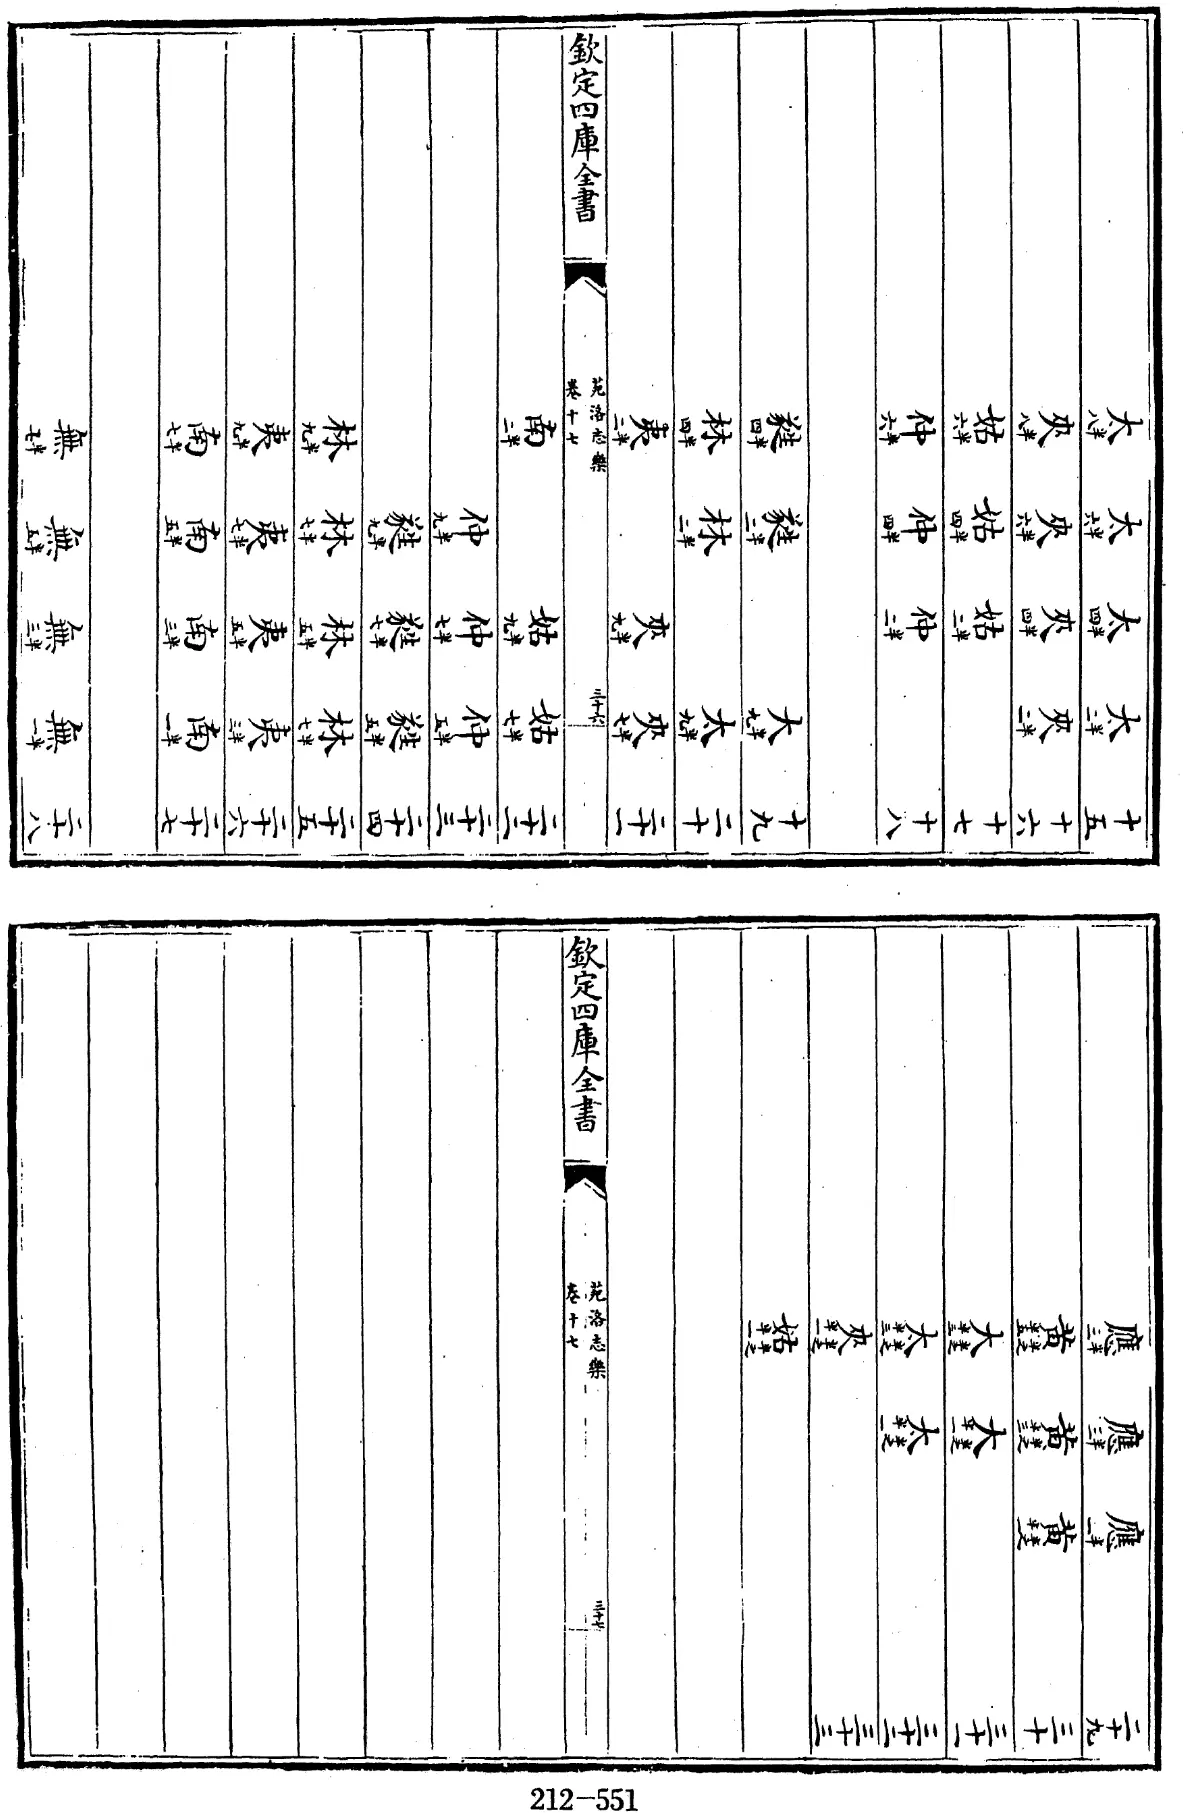 太八半 太六半 太四半 太二半 十五
夾八半 夾六半 夾四半 夾二半 十六
姑六半 姑四半 姑二半 十七
仲六半 仲四半 仲二半 十八
蕤四半 蕤二半 大九半 十九
林四半 林二半 太九半 二十
夷二半 夾九半 夾七半 二十一
欽定四庫全書
苑洛志樂
卷十七
三十六
南二半 姑九半 姑七半 二十二
仲九半 仲七半 仲五半 二十三
蕤九半 蕤七半 蕤五半 二十四
林九半 林七半 林五半 林七半 二十五
夷九半 夷七半 夷五半 夷三半 二十六
南七半 南五半 南三半 南一半 二十七
無七半 無五半 無三半 無一半 二十八
應三半 應三半 應一半 二十九
黄五半之半 黄三半之半 黄一半之半 三十
大三半之半 大一半之半 三十一
太三半之半 太一半之半 三十二
夾一半之半 三十三
姑一半之半
欽定四庫全書
苑洛志樂
卷十七
三十七
212-551